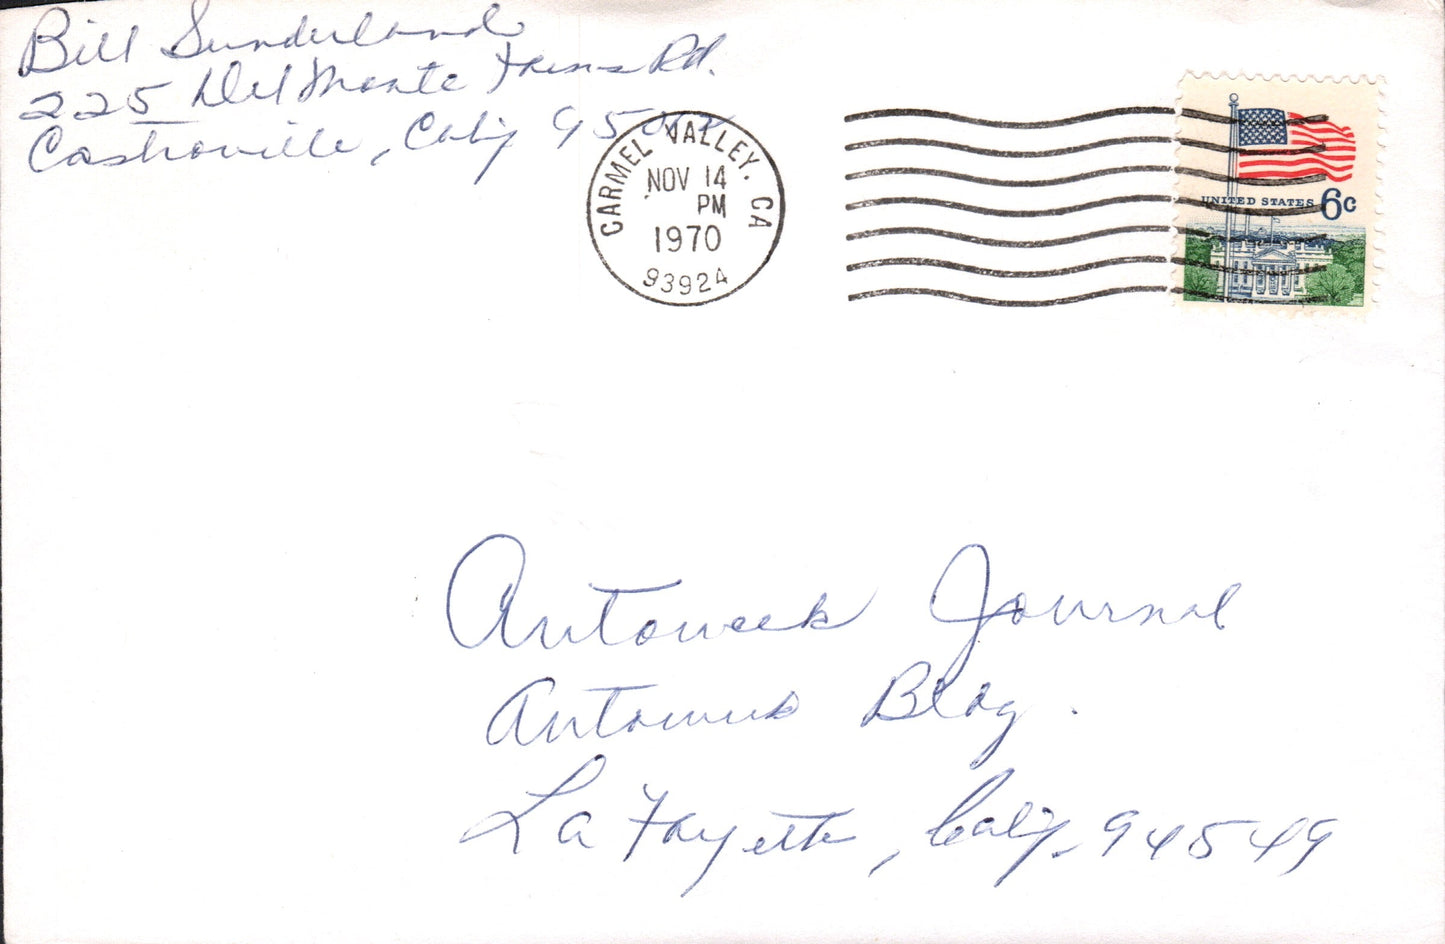 Bill Sunderland
225 Del Monte Farms Rd.
Castroville, Calif 95012
CARMEL VALLEY, CA
NOV 14
PM
1970
93924
UNITED STATES 6c
Autoweek Journal
Autoweek Bldg.
La Fayette, Calif. 94549